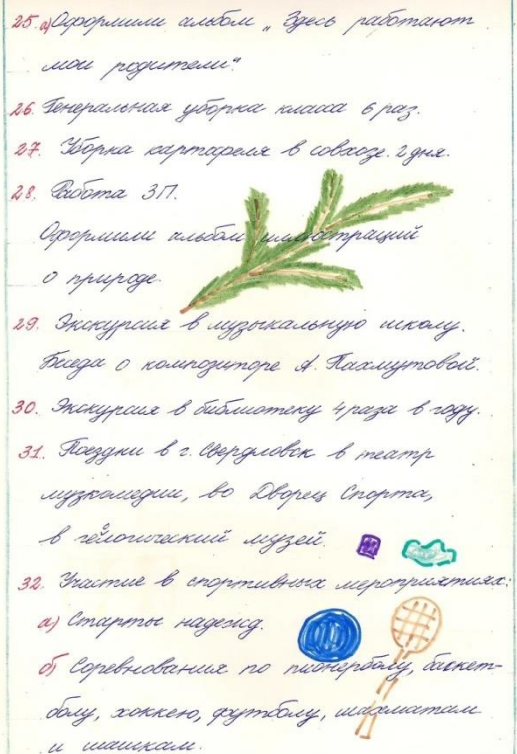 25. а) Оформили альбом „Здесь работают
мои родители".
26. Генеральная уборка класса 6 раз.
27. Уборка картофеля в совхозе. 2 дня.
28. Работа ЗП.
Оформили альбом иллюстраций
о природе.
29. Экскурсия в музыкальную школу.
Беседа о композиторе А. Пахмутовой.
30. Экскурсия в библиотеку 4 раза в году.
31. Поездки в г. Свердловск в театр
музкомедии, во Дворец Спорта,
в геологический музей.
32. Участие в спортивных мероприятиях:
а) Старты надежд.
б) Соревнования по пионерболу, баскет-
болу, хоккею, футболу, шахматам
и шашкам.